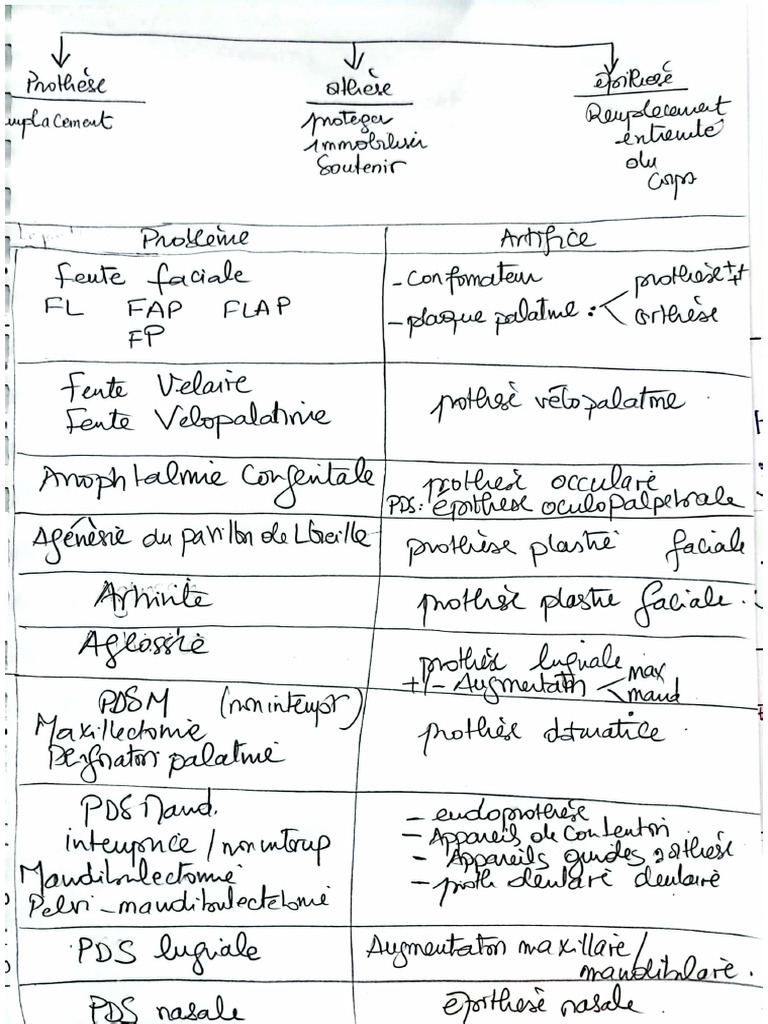 Prothèse
mplacement
othèse
proteger
immobiliser
Soutenir
épithesé
Remplacement
extremité
du
Corps
Problème
Artifice
fente faciale
FL FAP FLAP
FP
- Confomateur
- plaque palatine : < prothèse ++
orthèse
fente Velaire
Fente Velopalatine
prothesè vélopalatine
Anophtalmie Congenitale
prothesè occulare
PDS: épithese oculopalpebrale
Agénèsie du pavillon de L'oreille
prothèse plastie faciale
Arhinie
prothesè plastie faciale.
Aglossie
prothèse linguale
+/- Augmentation < max
mand
PDSM (non interupt)
Maxillectomie
Perforation palatine
prothèse obturatice
PDS Mand.
interuponce / non interup
Mandibulectomie
Pelvi-mandibulectomie
- endoprothèse
- Appareils de Contention
- Appareils guides orthèse
- proth dentaire dentaire
PDS linguale
Augmentation maxillaire /
mandibulaire.
PDS nasale
épithesè nasale.